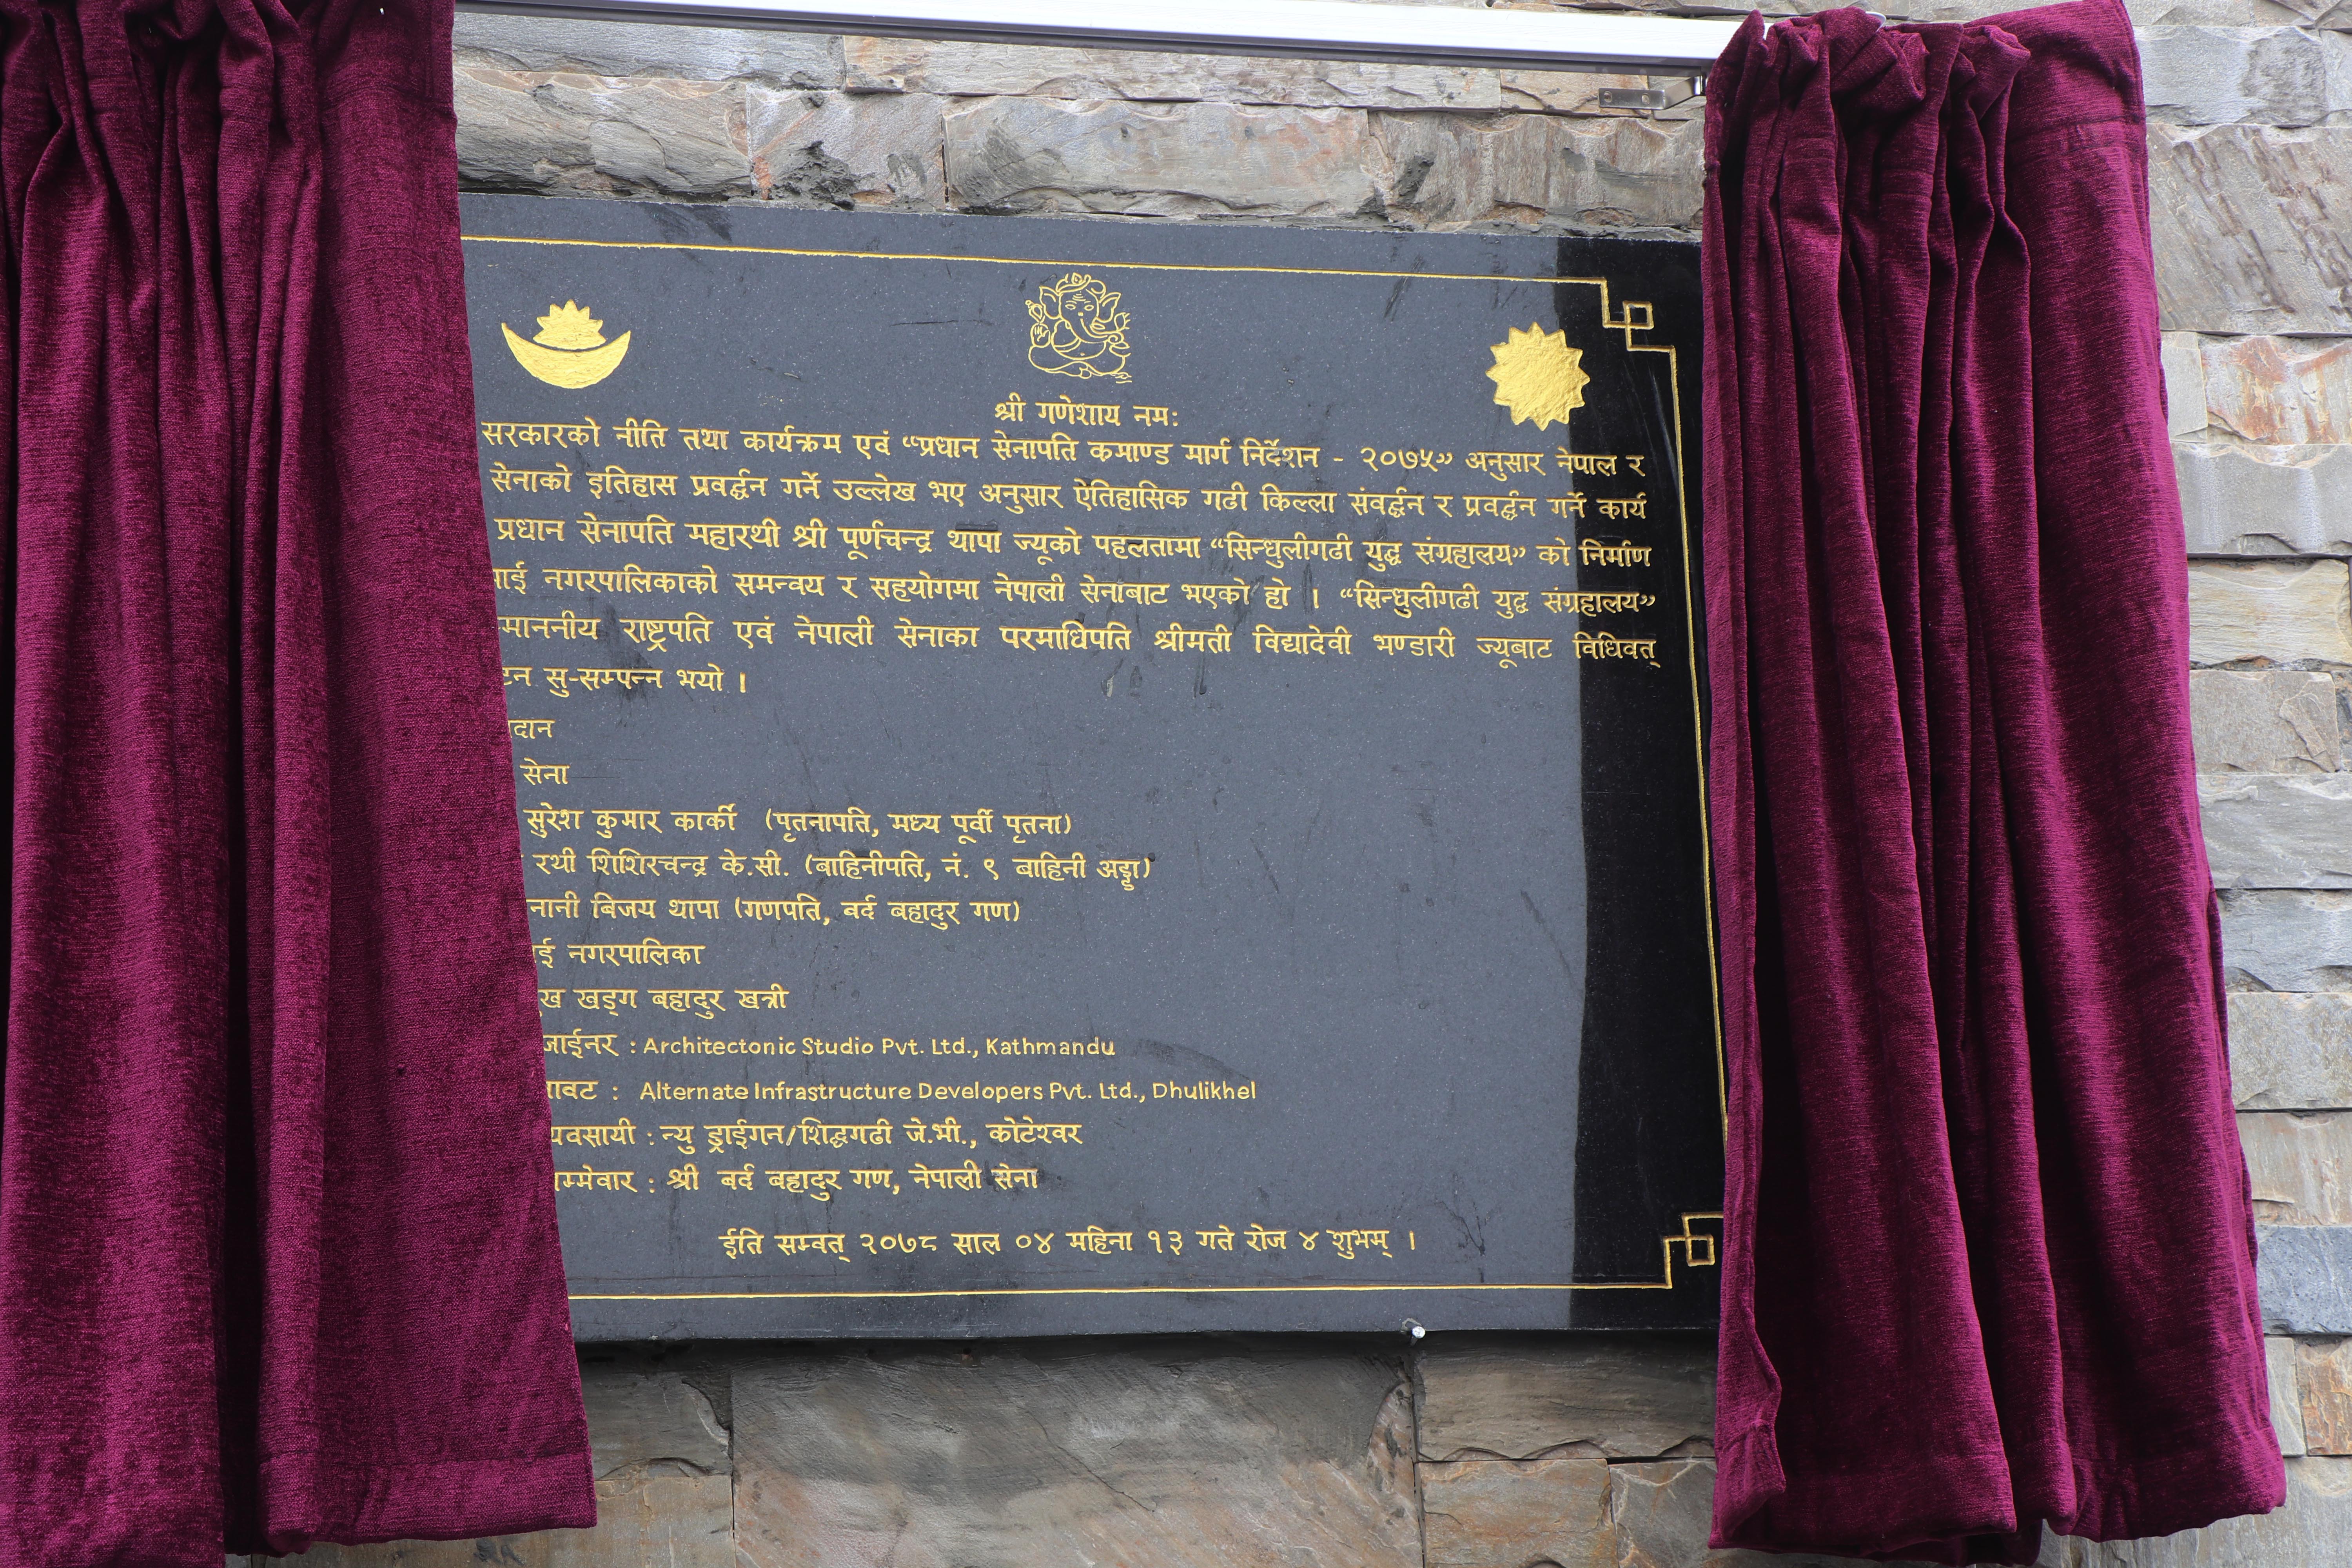 श्री गणेशाय नमः
सरकारको नीति तथा कार्यक्रम एवं “प्रधान सेनापति कमाण्ड मार्ग निर्देशन - २०७५” अनुसार नेपाल र
सेनाको इतिहास प्रवर्द्धन गर्ने उल्लेख भए अनुसार ऐतिहासिक गढी किल्ला संवर्द्धन र प्रवर्द्धन गर्ने कार्य
प्रधान सेनापति महारथी श्री पूर्णचन्द्र थापा ज्यूको पहलतामा “सिन्धुलीगढी युद्ध संग्रहालय” को निर्माण
नगरपालिकाको समन्वय र सहयोगमा नेपाली सेनाबाट भएको हो । “सिन्धुलीगढी युद्ध संग्रहालय”
माननीय राष्ट्रपति एवं नेपाली सेनाका परमाधिपति श्रीमती विद्यादेवी भण्डारी ज्यूबाट विधिवत्
सु-सम्पन्न भयो ।
सेना
सुरेश कुमार कार्की (पृतनापति, मध्य पूर्वी पृतना)
रथी शिशिरचन्द्र के.सी. (बाहिनीपति, नं. ९ बाहिनी अड्डा)
बिजय थापा (गणपति, बर्द बहादुर गण)
नगरपालिका
खड्ग बहादुर खत्री
: Architectonic Studio Pvt. Ltd., Kathmandu
: Alternate Infrastructure Developers Pvt. Ltd., Dhulikhel
: न्यु ड्राईगन/शिद्धगढी जे.भी., कोटेश्वर
: श्री बर्द बहादुर गण, नेपाली सेना
ईति सम्वत् २०७८ साल ०४ महिना १३ गते रोज ४ शुभम् ।